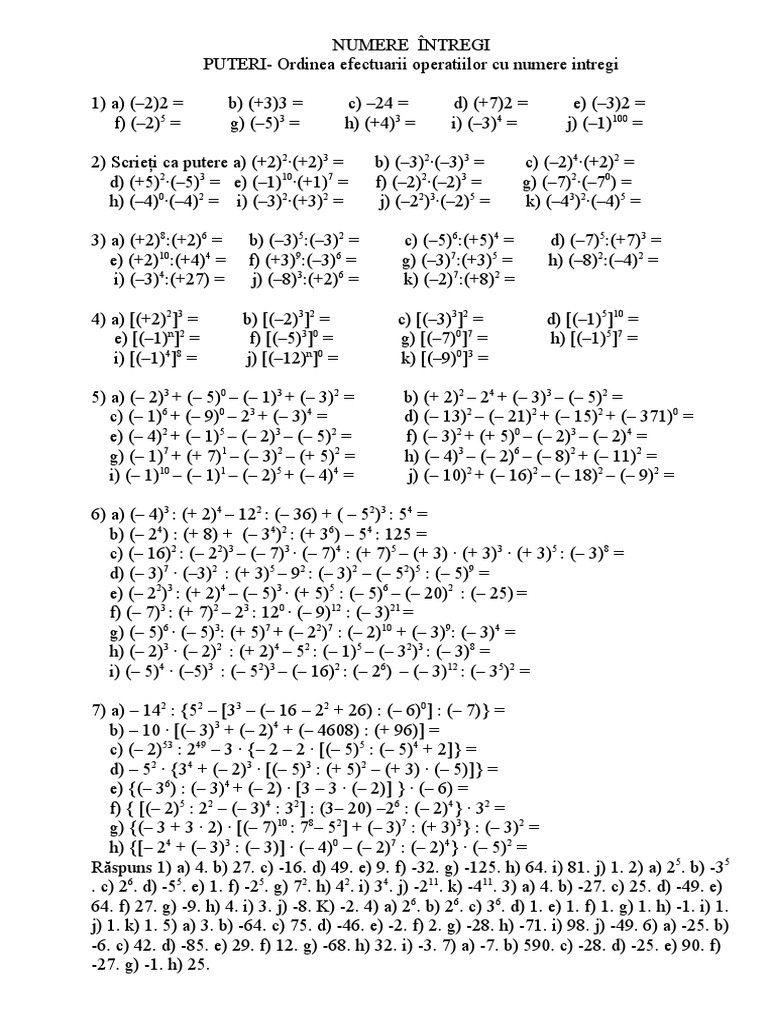 NUMERE ÎNTREGI
PUTERI- Ordinea efectuarii operatiilor cu numere intregi
1) a) (–2)2 = b) (+3)3 = c) –24 = d) (+7)2 = e) (–3)2 =
f) (–2)⁵ = g) (–5)³ = h) (+4)³ = i) (–3)⁴ = j) (–1)¹⁰⁰ =
2) Scrieți ca putere a) (+2)²·(+2)³ = b) (–3)²·(–3)³ = c) (–2)⁴·(+2)² =
d) (+5)²·(–5)³ = e) (–1)¹⁰·(+1)⁷ = f) (–2)²·(–2)³ = g) (–7)²·(–7⁰) =
h) (–4)⁰·(–4)² = i) (–3)²·(+3)² = j) (–2²)³·(–2)⁵ = k) (–4³)²·(–4)⁵ =
3) a) (+2)⁸:(+2)⁶ = b) (–3)⁵:(–3)² = c) (–5)⁶:(+5)⁴ = d) (–7)⁵:(+7)³ =
e) (+2)¹⁰:(+4)⁴ = f) (+3)⁹:(–3)⁶ = g) (–3)⁷:(+3)⁵ = h) (–8)²:(–4)² =
i) (–3)⁴:(+27) = j) (–8)³:(+2)⁶ = k) (–2)⁷:(+8)² =
4) a) [(+2)²]³ = b) [(–2)³]² = c) [(–3)³]² = d) [(–1)⁵]¹⁰ =
e) [(–1)ⁿ]² = f) [(–5)³]⁰ = g) [(–7)⁰]⁷ = h) [(–1)⁵]⁷ =
i) [(–1)⁴]⁸ = j) [(–12)ⁿ]⁰ = k) [(–9)⁰]³ =
5) a) (– 2)³ + (– 5)⁰ – (– 1)³ + (– 3)² = b) (+ 2)² – 2⁴ + (– 3)³ – (– 5)² =
c) (– 1)⁶ + (– 9)⁰ – 2³ + (– 3)⁴ = d) (– 13)² – (– 21)² + (– 15)² + (– 371)⁰ =
e) (– 4)² + (– 1)⁵ – (– 2)³ – (– 5)² = f) (– 3)² + (+ 5)⁰ – (– 2)³ – (– 2)⁴ =
g) (– 1)⁷ + (+ 7)¹ – (– 3)² – (+ 5)² = h) (– 4)³ – (– 2)⁶ – (– 8)² + (– 11)² =
i) (– 1)¹⁰ – (– 1)¹ – (– 2)⁵ + (– 4)⁴ = j) (– 10)² + (– 16)² – (– 18)² – (– 9)² =
6) a) (– 4)³ : (+ 2)⁴ – 12² : (– 36) + ( – 5²)³ : 5⁴ =
b) (– 2⁴) : (+ 8) + (– 3⁴)² : (+ 3⁶) – 5⁴ : 125 =
c) (– 16)² : (– 2²)³ – (– 7)³ · (– 7)⁴ : (+ 7)⁵ – (+ 3) · (+ 3)³ · (+ 3)⁵ : (– 3)⁸ =
d) (– 3)⁷ · (–3)² : (+ 3)⁵ – 9² : (– 3)² – (– 5²)⁵ : (– 5)⁹ =
e) (– 2²)³ : (+ 2)⁴ – (– 5)³ · (+ 5)⁵ : (– 5)⁶ – (– 20)² : (– 25) =
f) (– 7)³ : (+ 7)² – 2³ : 12⁰ · (– 9)¹² : (– 3)²¹ =
g) (– 5)⁶ · (– 5)³: (+ 5)⁷ + (– 2²)⁷ : (– 2)¹⁰ + (– 3)⁹: (– 3)⁴ =
h) (– 2)³ · (– 2)² : (+ 2)⁴ – 5² : (– 1)⁵ – (– 3²)³ : (– 3)⁸ =
i) (– 5)⁴ · (–5)³ : (– 5²)³ – (– 16)² : (– 2⁶) – (– 3)¹² : (– 3⁵)² =
7) a) – 14² : {5² – [3³ – (– 16 – 2² + 26) : (– 6)⁰] : (– 7)} =
b) – 10 · [(– 3)³ + (– 2)⁴ + (– 4608) : (+ 96)] =
c) (– 2)⁵³ : 2⁴⁹ – 3 · {– 2 – 2 · [(– 5)⁵ : (– 5)⁴ + 2]} =
d) – 5² · {3⁴ + (– 2)³ · [(– 5)³ : (+ 5)² – (+ 3) · (– 5)]} =
e) {(– 3⁶) : (– 3)⁴ + (– 2) · [3 – 3 · (– 2)] } · (– 6) =
f) { [(– 2)⁵ : 2² – (– 3)⁴ : 3²] : (3– 20) –2⁶ : (– 2)⁴} · 3² =
g) {(– 3 + 3 · 2) · [(– 7)¹⁰ : 7⁸– 5²] + (– 3)⁷ : (+ 3)³} : (– 3)² =
h) {[– 2⁴ + (– 3)³ : (– 3)] · (– 4)⁰ – (– 2)⁷ : (– 2)⁴} · (– 5)² =
Răspuns 1) a) 4. b) 27. c) -16. d) 49. e) 9. f) -32. g) -125. h) 64. i) 81. j) 1. 2) a) 2⁵. b) -3⁵
. c) 2⁶. d) -5⁵. e) 1. f) -2⁵. g) 7². h) 4². i) 3⁴. j) -2¹¹. k) -4¹¹. 3) a) 4. b) -27. c) 25. d) -49. e)
64. f) 27. g) -9. h) 4. i) 3. j) -8. K) -2. 4) a) 2⁶. b) 2⁶. c) 3⁶. d) 1. e) 1. f) 1. g) 1. h) -1. i) 1.
j) 1. k) 1. 5) a) 3. b) -64. c) 75. d) -46. e) -2. f) 2. g) -28. h) -71. i) 98. j) -49. 6) a) -25. b)
-6. c) 42. d) -85. e) 29. f) 12. g) -68. h) 32. i) -3. 7) a) -7. b) 590. c) -28. d) -25. e) 90. f)
-27. g) -1. h) 25.